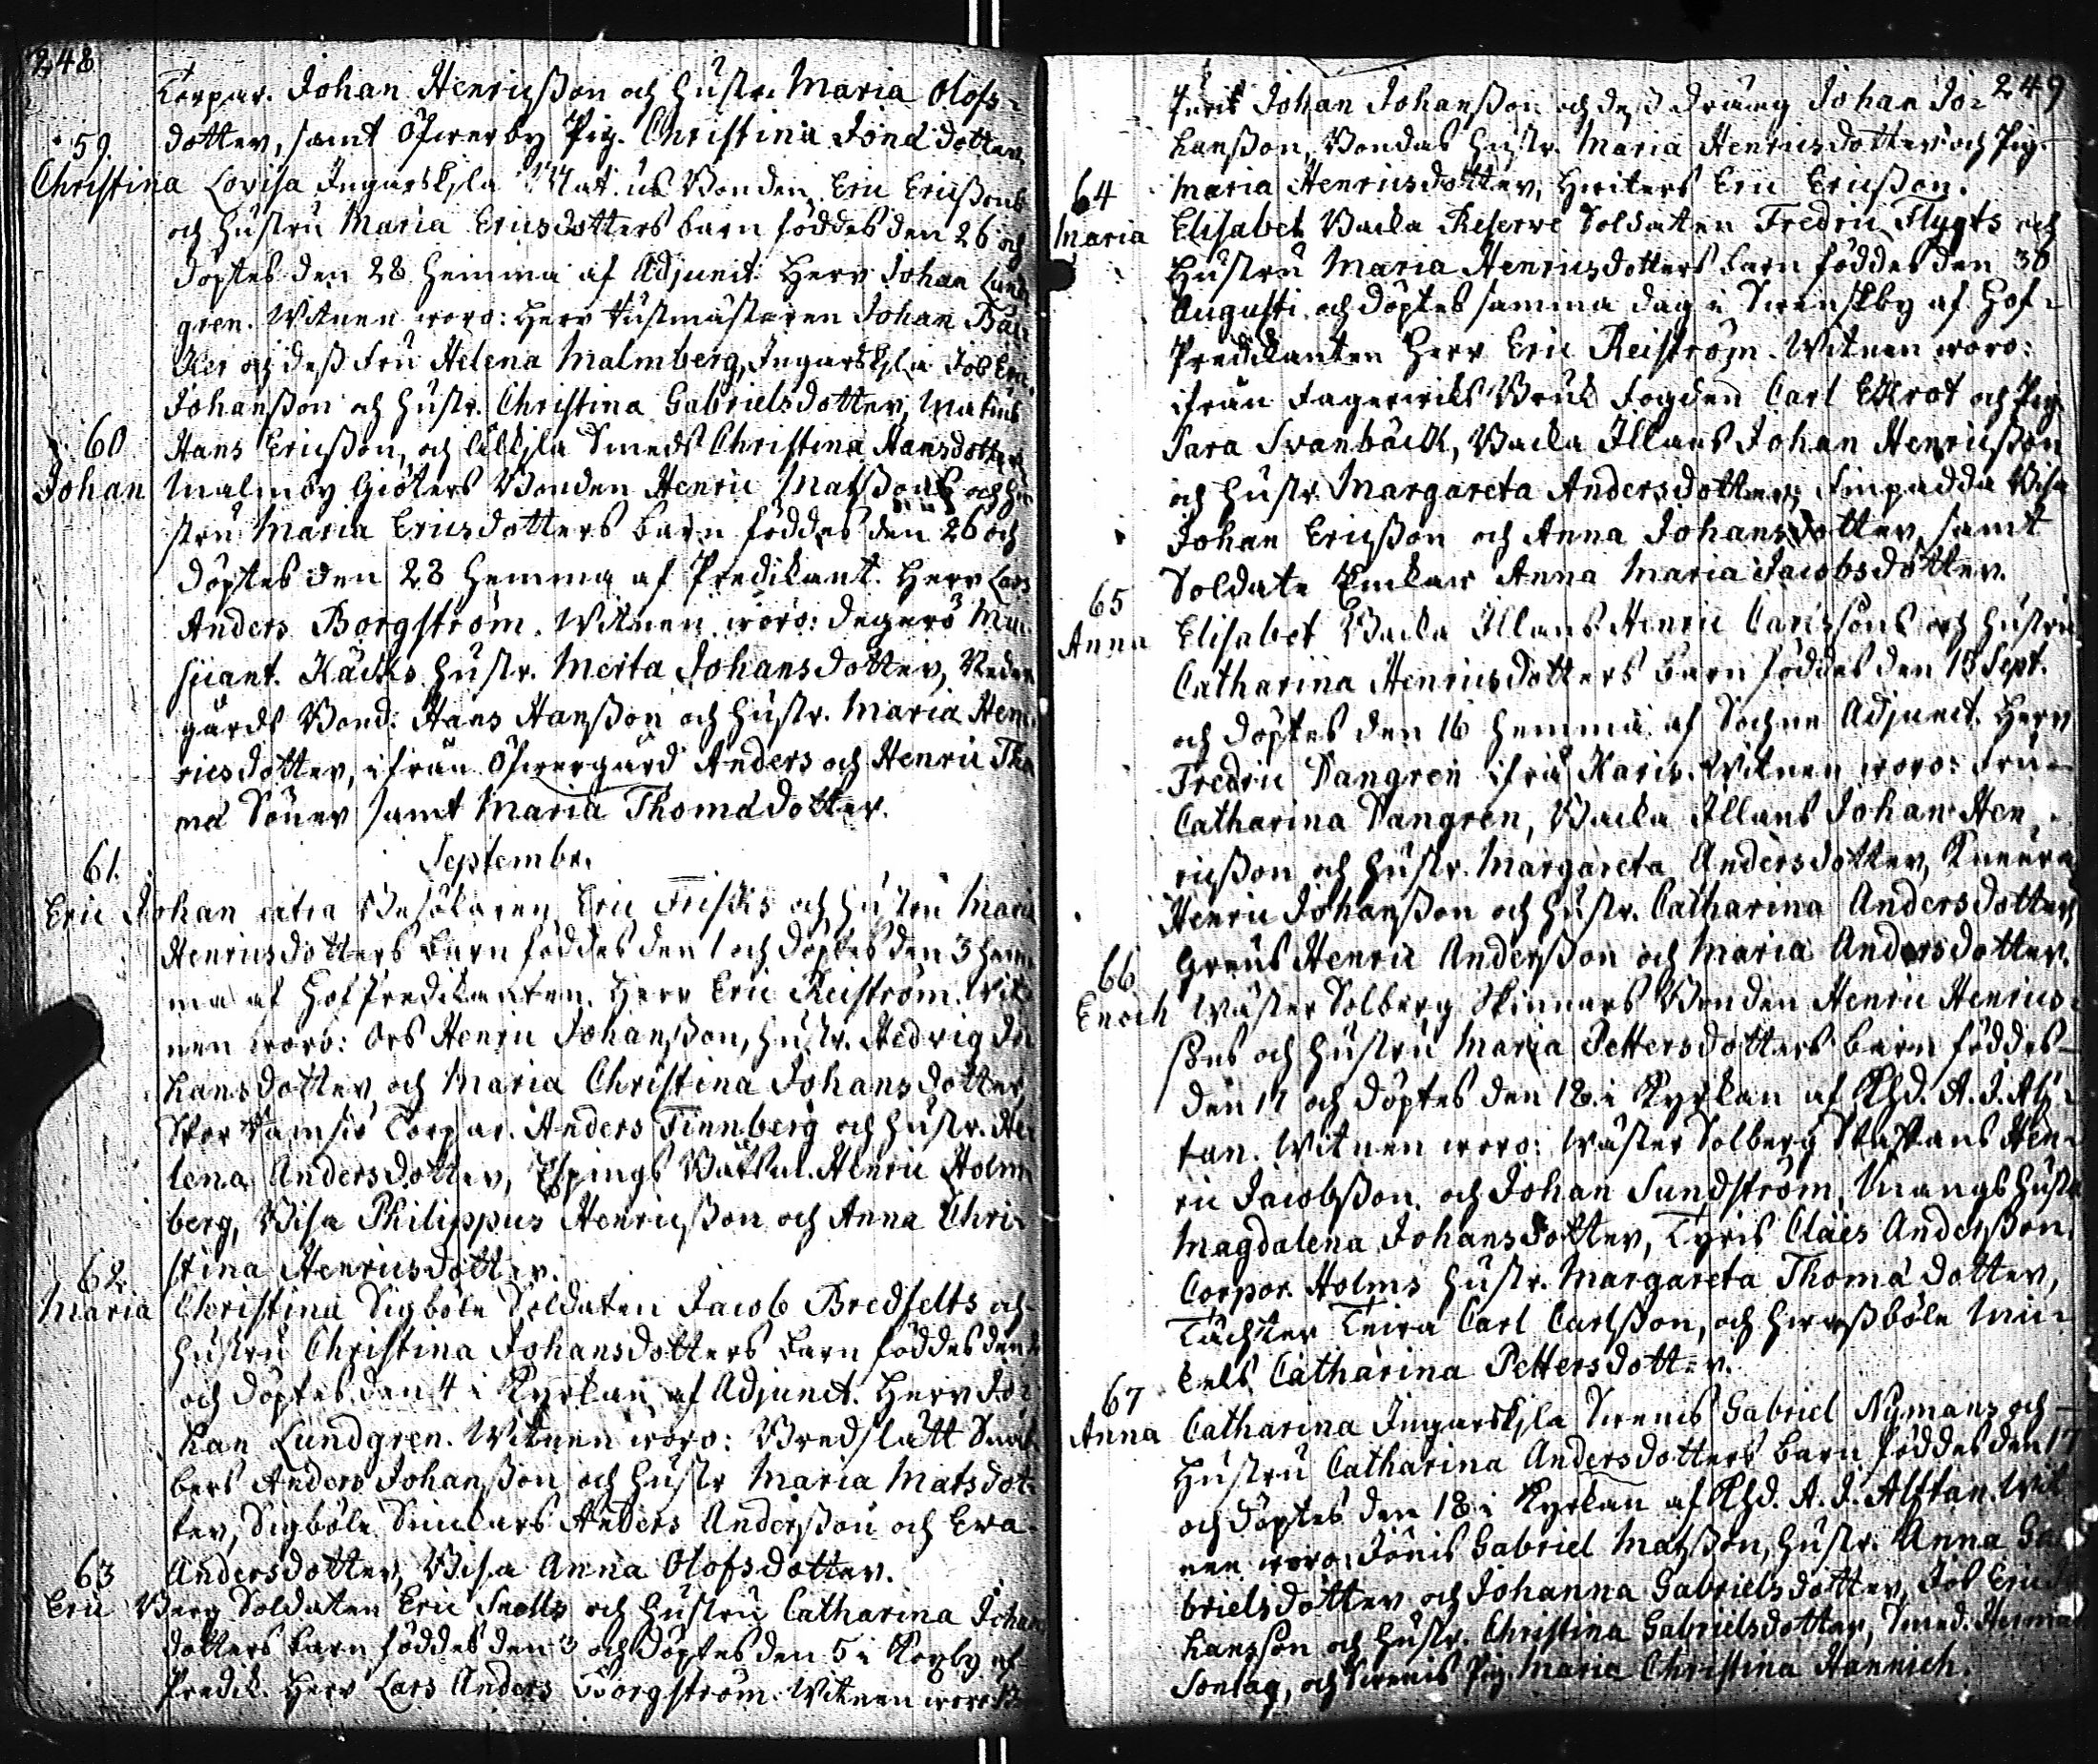 248
Corpor. Johan Henricßon och hustr. Maria Olofs-
dotter, samt Öfwerby Pig. Christina Jona dotter.
59.
Christina Lovisa Ingarskjla Bonden Eric Ericßons
och hustru Maria Ericsdotters barn föddes den 26 och
döptes den 28 hemma af Adjunct. Herr Johan Lund-
gren. Witnen woro: Herr Johan Bäc-
ker och deß Fru Helena Malmberg, Ingarskjla Job Eric
Johanßon och hustr. Christina Gabrielsdotter,
60
Hans Ericßon, och Lillkjla Smeds Christina Hansdotter.
Johan Malmby Giöters Bonden Henric Matsßons och hu-
stru Maria Ericsdotters barn föddes den 26 och
döptes den 28 hemma af Predikant. Herr Lars
Anders Borgström. Witnen woro: Degerö Mu-
sicant. hustr. Merta Johansdotter, Neder-
gårds Bond. Hans Hanßon och hustr. Maria Hen-
ricsdotter, ifrån Öfwergård Anders och Henric Tho-
mæ Söner samt Maria Thomædotter.
Septembr.
61.
Eric Johan Eric Frisks och hustru Maria
Henricsdotters barn föddes den 1 och döptes den 3 hem-
ma af Hof Predikanten Herr Eric Reiström. Wit-
nen woro: Ors Henric Johanßon, hustr. Hedvig Jo-
hansdotter och Maria Christina Johansdotter,
Stor Ramsiö Corpor. Anders Finnberg och hustr. He-
lena Andersdotter, Espings Henric Holm-
berg, Visa Philippus Henricßon och Anna Chri-
stina Henricsdotter.
62
Maria Christina Sigböle Soldaten Jacob Bredfelts och
hustru Christina Johansdotters barn föddes den
och döptes den 4 i Kyrkan af Adjunct. Herr Jo-
han Lundgren. Witnen woro: Bredslätt
Anders Johanßon och hustr Maria Matsdot-
ter, Sigböle Anders Anderßon och Eva
63
Andersdotter, Visa Anna Olofsdotter.
Eric Berg Soldaten Eric Snolls och hustru Catharina Johans
dotters barn föddes den 3 och döptes den 5 i Köpby af
Predik. Herr Lars Anders Borgström. Witnen woro
249
Johan Johanßon och deß dräng Johan Jo-
hanßon, Bondas hustr. Maria Henricsdotter och Pig.
64
Maria Henricsdotter, Eric Ericßon.
Maria Elisabet Backa Reserve Soldaten Fredric Flygts och
Hustru Maria Henricsdotters barn föddes den 30
Augusti och döptes samma dag i Svenskby af Hof-
Predikanten Herr Eric Reiström. Witnen woro:
ifrån Fagerwiks Bruk Fogden Carl Ekrot och Pig.
Sara Svanbäck, Backa Illans Johan Henricßon
och hustr. Margareta Andersdotter, Finpadda Visa
Johan Ericßon och Anna Johansdotter, samt
Soldate Enckan Anna Maria Jacobsdotter.
65
Anna Elisabet Backa Illans Henric Carlssons och hustru
Catharina Henricsdotters barn föddes den 15 Sept.
och döptes den 16 hemma af Sochne Adjunct. Herr
Fredric Dangren ifrån Karis. Witnen woro: Fru
Catharina Dangren, Backa Illans Johan Hen-
ricßon och hustr. Margareta Andersdotter,
Henric Johanßon och hustr. Catharina Andersdotter,
66
Grens Henric Anderßon och Maria Andersdotter.
Enoch Wäster Solberg Skinnars Bonden Henric Henrics-
sons och hustru Maria Pettersdotters barn föddes
den 17 och döptes den 18 i Kyrkan af Khd. A. J. Alf-
tan. Witnen woro: Wäster Solberg Staffans Hen-
ric Jacobßon och Johan Sundström, Mangs hustr
Magdalena Johansdotter, Tyris Claës Anderßon,
Corpor. Holms hustr. Margareta Thomædotter,
Täckter Teira Carl Carlßon, och Mic-
kels Catharina Pettersdotter.
67
Anna Catharina Ingarskjla Svenis Gabriel Nymans och
Hustru Catharina Andersdotters barn föddes den 17
och döptes den 18 i Kyrkan af Khd. A. J. Alftan. Wit-
nen woro: Jönis Gabriel Matsßon, hustr. Anna Ga-
brielsdotter och Johanna Gabrielsdotter, Job Eric Jo-
hansson och hustr. Christina Gabrielsdotter, Smed. Herman
Sontag, och Svenis Pig. Maria Christina Hannich.